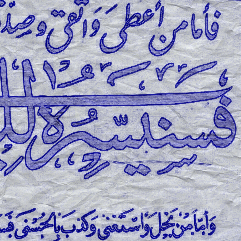 فأما من أعطى واتقى وصدق
فسنيسره لل
وأما من بخل واستغنى وكذب بالحسنى فس